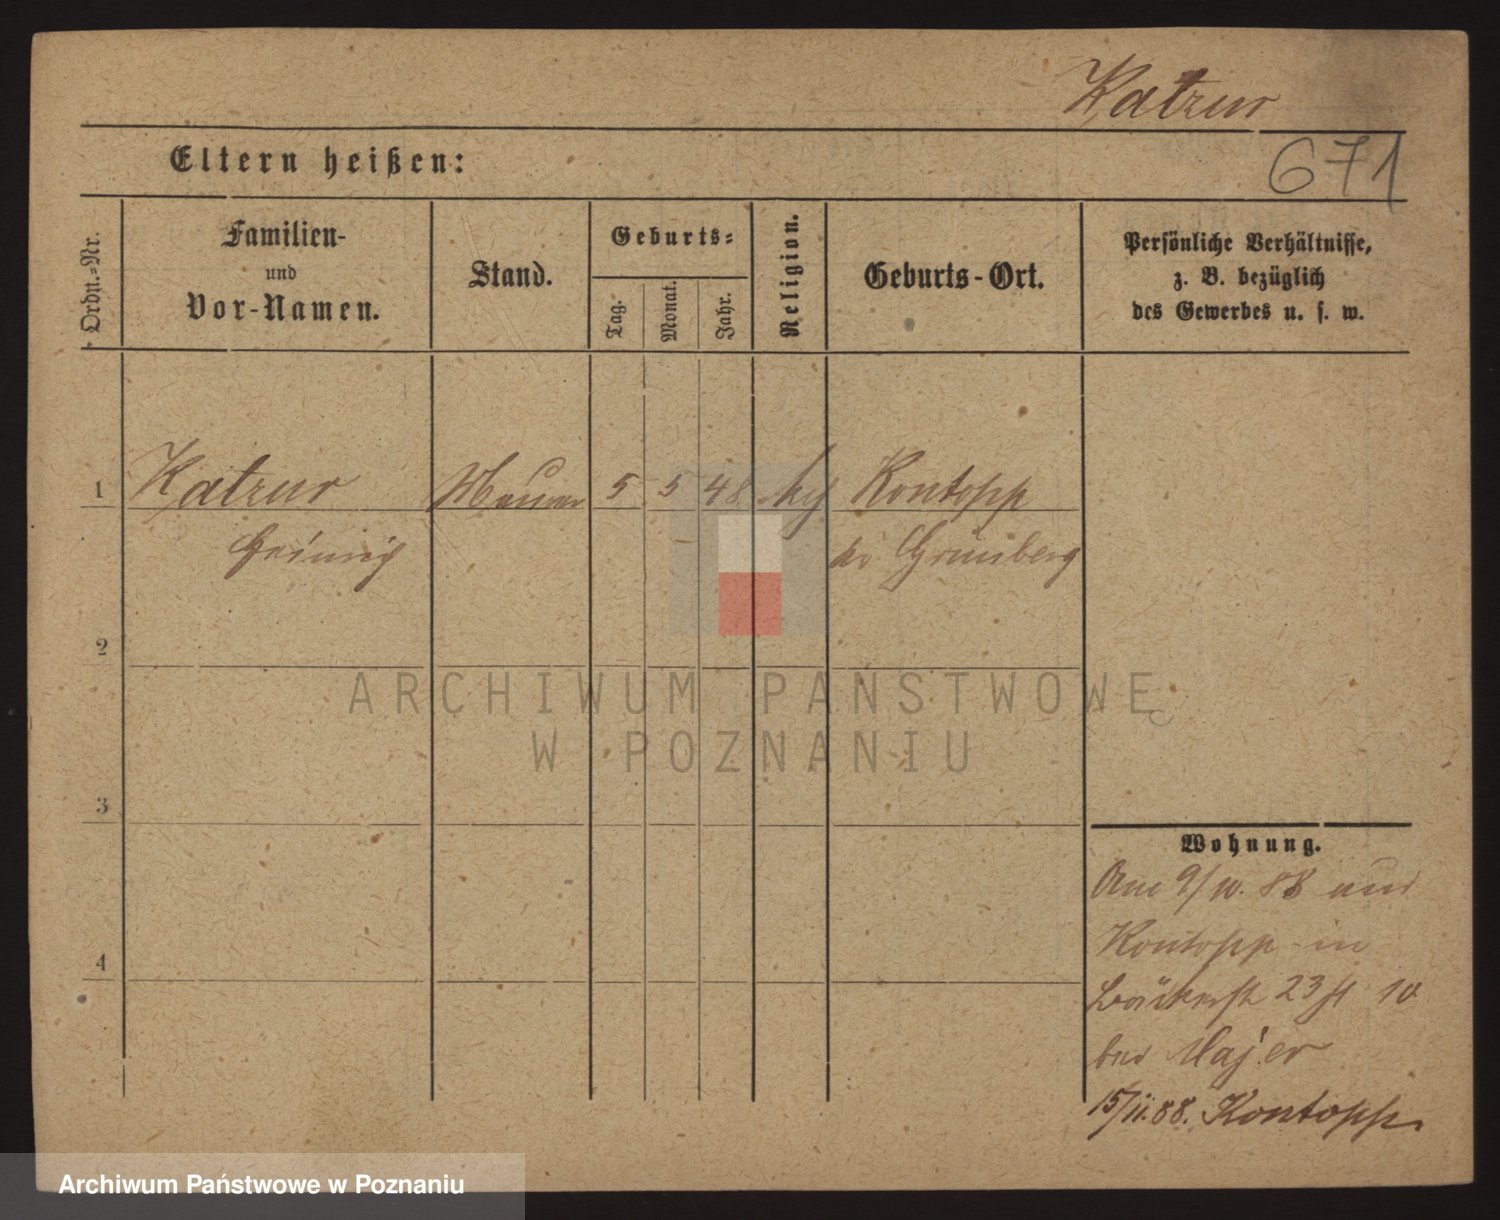 Katzur
Eltern heißen:
671
Ordn.-Nr.
Familien-
und
Vor-Namen.
Stand.
Geburts-
Tag.
Monat.
Jahr.
Religion.
Geburts-Ort.
Persönliche Verhältnisse,
z. B. bezüglich
des Gewerbes u. s. w.
1 Katzur Maurer 5 5 48 Kontopp
Heinrich Grünberg
2
3
4
ARCHIWUM PAŃSTWOWE
W POZNANIU
Wohnung.
Am 9/10. 88 aus
Kontopp in
Bäckerstr 23 10
bei Majer
15/11.88. Kontopp.
Archiwum Państwowe w Poznaniu